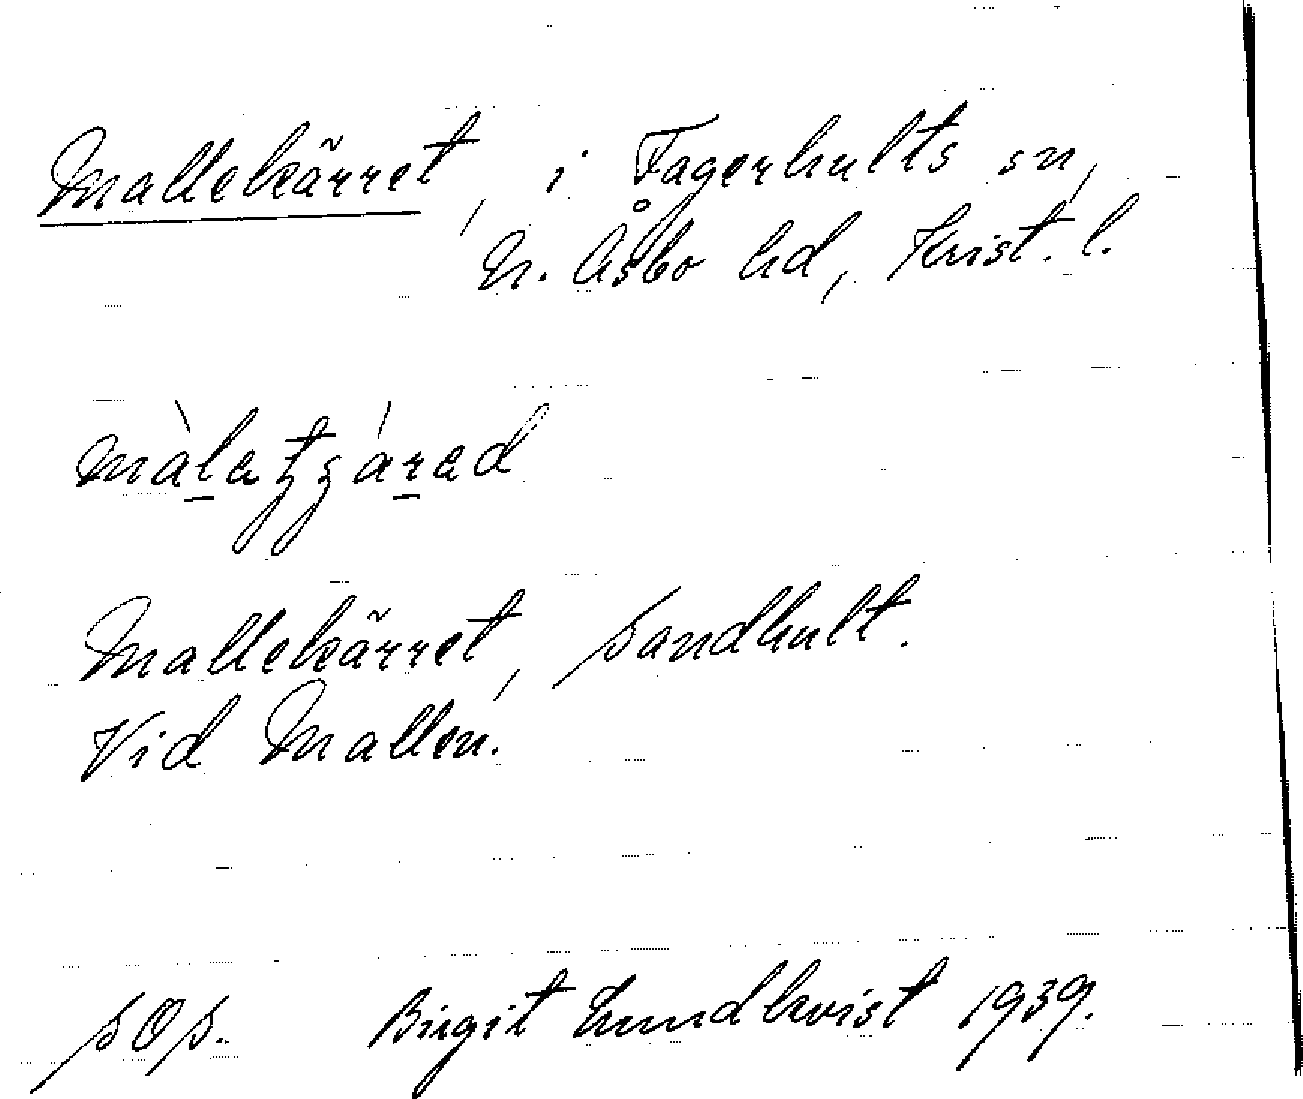 Mallekärret, i Fagerhults sn,
N. Åsbo hd, Krist. l.
Mallekärret, Sandhult.
Vid Mallen.
SOS. Birgit Lundkvist 1939.